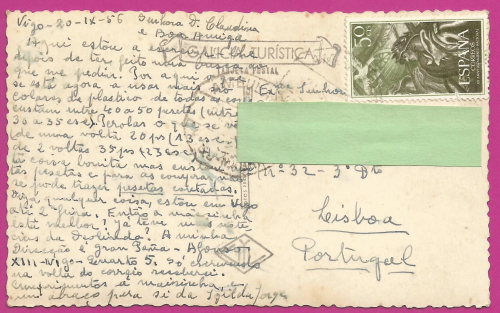 Vigo-20-IX-56 Senhora D. Claudina
e Boa Amiga
Aqui estou a escrever-lhe
depois de ter feito
que me pediu. Por aqui o que
se está agora a usar mais são
colares de plastico de todas as cores
custam entre 40 a 50 pesetas (entre
30 a 35 esc). Perolas o que se vê
(de uma volta 20 ps (13 esc.) e
de 2 voltas 35 ps (23 esc)
ta coisa bonita mas cus
tas pesetas e para as comprar não
se pode trazer pesetas contadas.
Diga qualquer coisa, estou em Vigo
até 2ª feira. Então a mãisinha
está melhor? já teve
cias da A minha
Direcção é Gran Peña-Afonso
XIII-Vigo-Quarto 5. Só escrevendo
na volta do correio receberei.
Cumprimentos à mãisinha e
um abraço para si da Gilda Jorge
GALICIA TURÍSTICA
POSTAL
50 CTS
ESPAÑA
CORREOS
Exma Senhora
Nº 32-3º Dto
Lisboa
Portugal